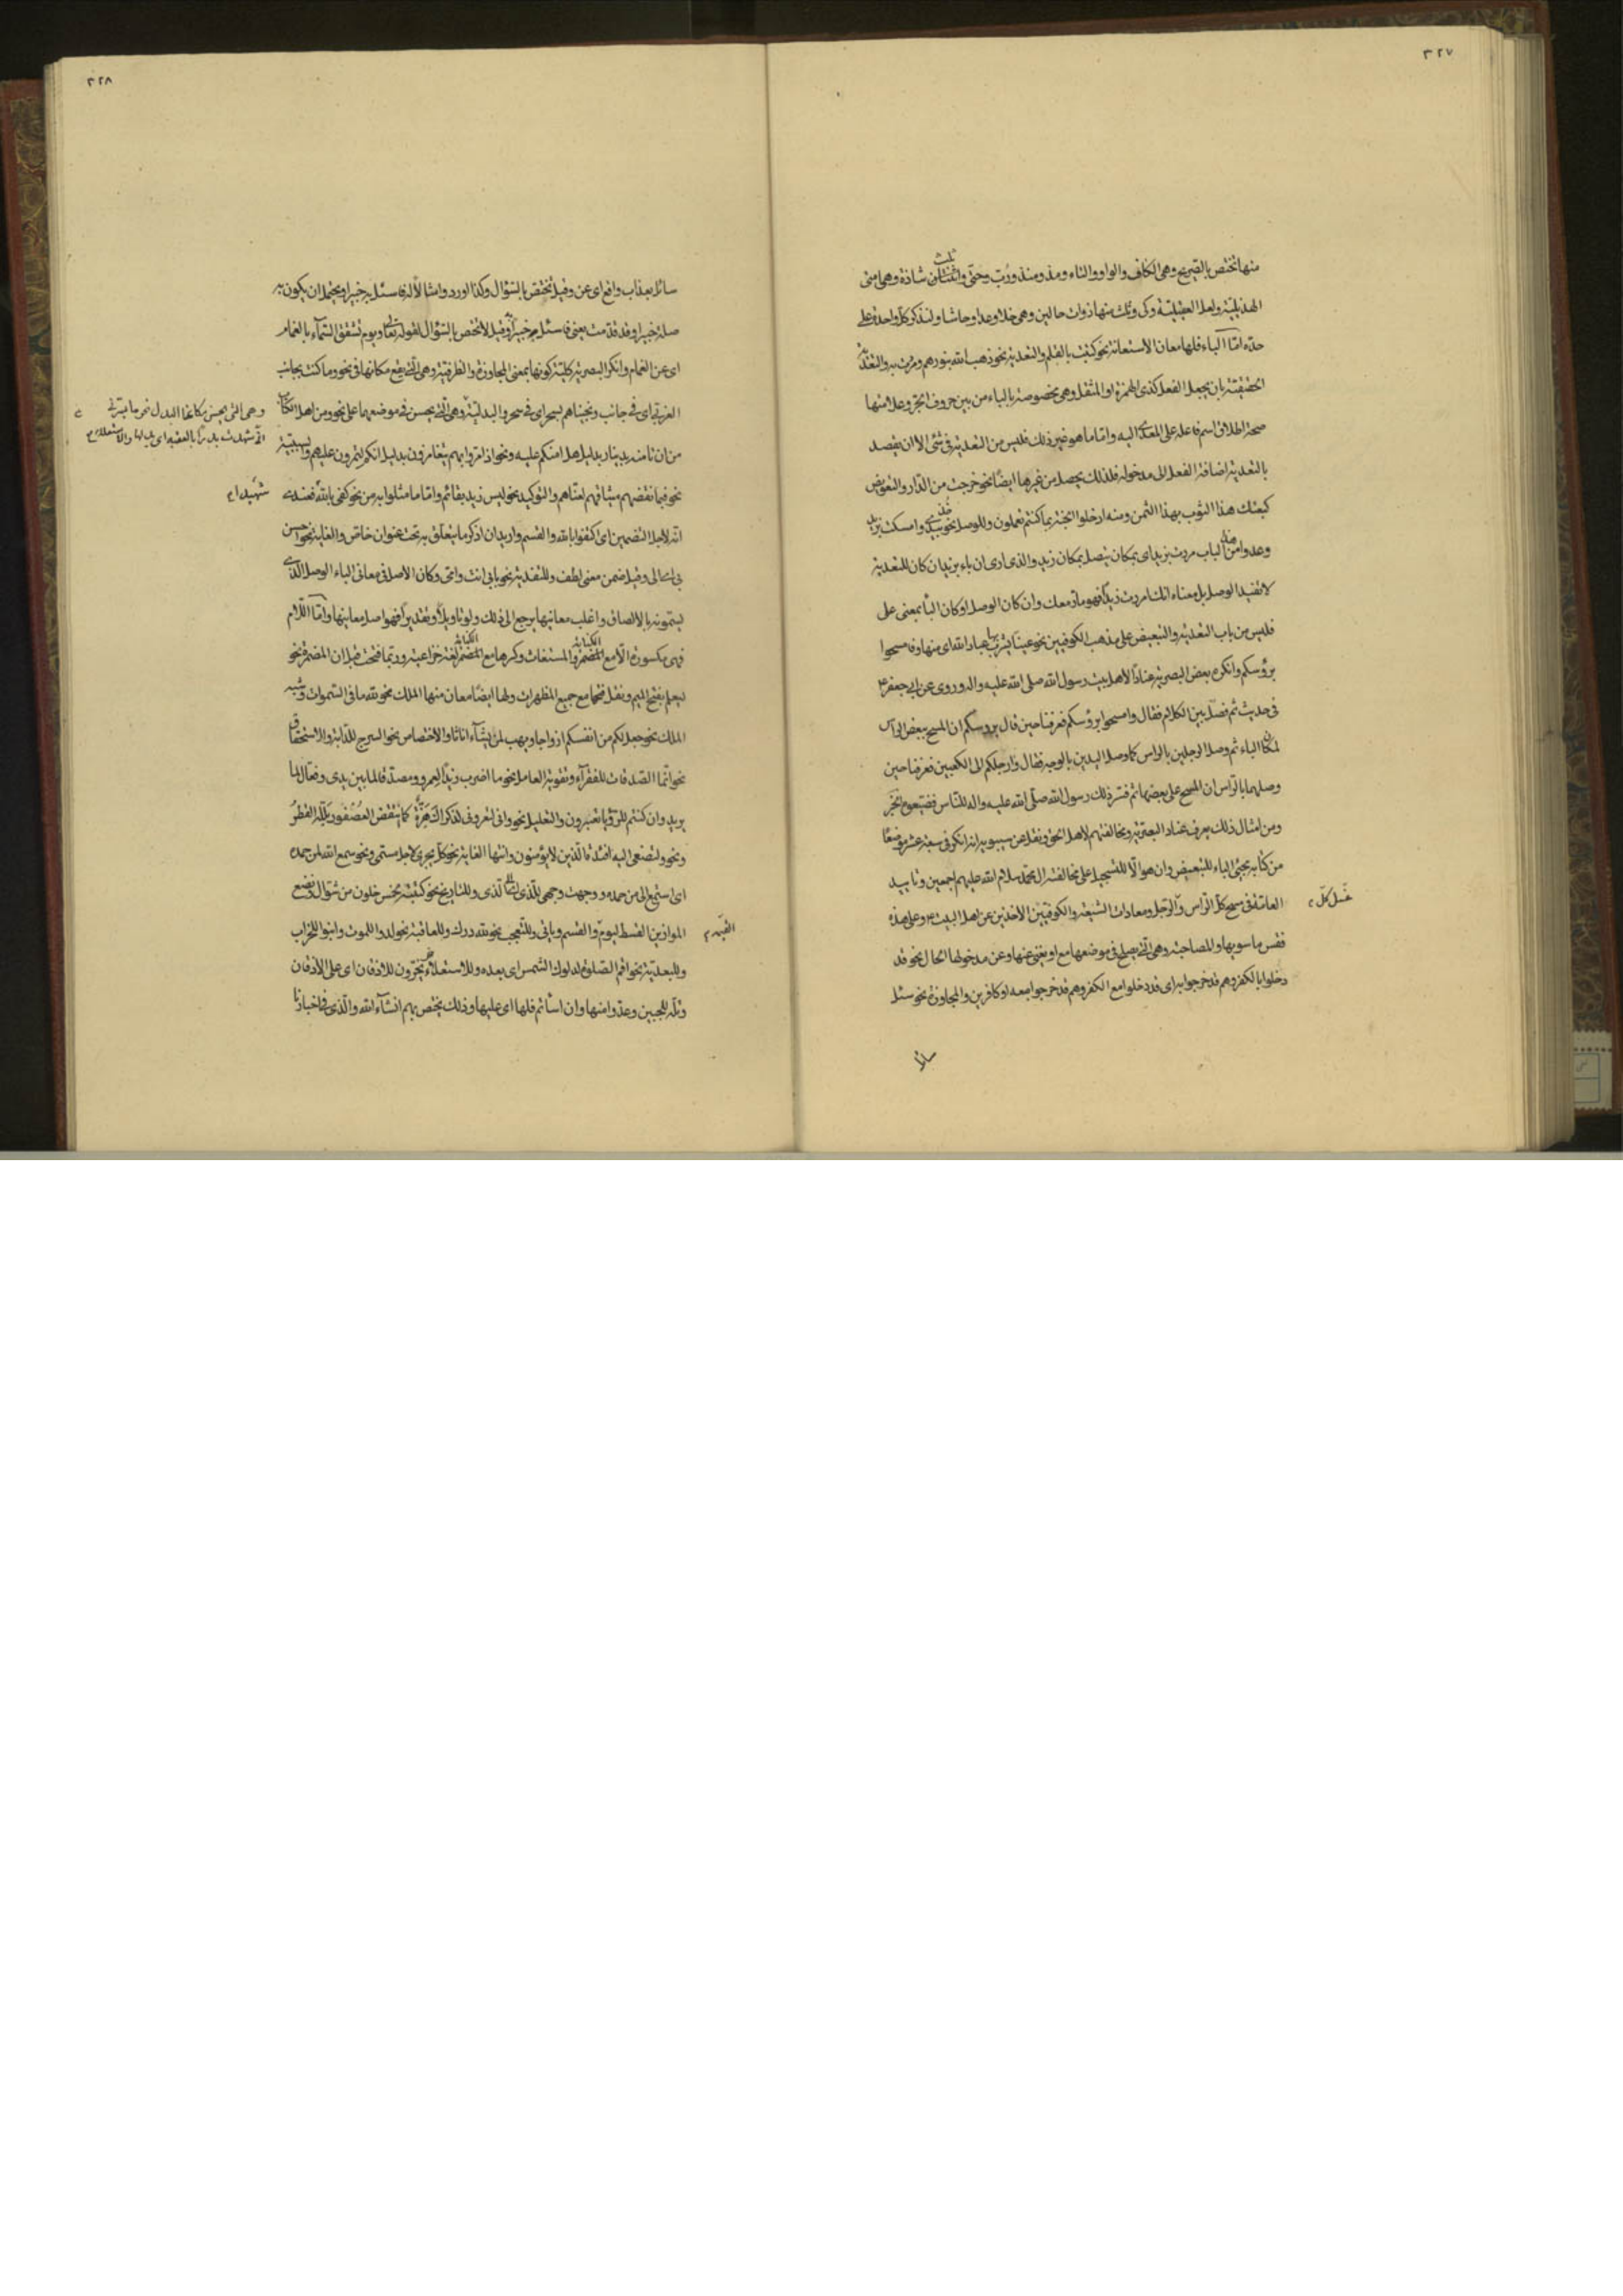 ٣٢٧
منها تختص بالصريح وهي الكاف والواو والتاء ومذ ومنذ ورُبّ وحتى وثلث شاذة وهي متى
الهذيلية ولعل العقيلية وكي وثلث منها ذوات حالين وهي خلا وعدا وحاشا ولنذكر كل واحدة على
حدة امّا الباء فلها معان الاستعانة نحو كتبت بالقلم والتعدية نحو ذهب الله بنورهم ومررت به والتعدية
الحقيقيّة بان يجعل الفعل كذي الهمزة او المثقل وهي مخصوصة بالباء من بين حروف الجر وعلامتها
صحة اطلاق اسم فاعله على المعدّى اليه وامّا ما هو غير ذلك فليس من التعدية في شئ الا ان يقصد
بالتعدية اضافة الفعل الى مدخوله فلذلك يحصل من غيرها ايضًا نحو خرجت من الدّار والتعويض
كبعتك هذا الثوب بهذا الثمن ومنه ادخلوا الجنة بما كنتم تعملون وللوصل نحو خذ بيدي وامسكت بزيد
وعدوا منه الباب مررت بزيد اي بمكان يتصل بمكان زيد والذي ارى ان باء بزيد ان كان للتعدية
لا تفيد الوصل بل معناه انك امررت زيدًا فهو مارّ معك وان كان الوصل او كان الباء بمعنى على
فليس من باب التعدية والتبعيض على مذهب الكوفيين نحو عينا يشرب بها عباد الله اي منها وفامسحوا
برؤسكم وانكره بعض البصرية عنادًا لاهل بيت رسول الله صلى الله عليه واله وروي عن ابي جعفر ع
في حديث ثم فصّل بين الكلام فقال وامسحوا برؤسكم فعرفنا حين قال برؤسكم ان المسح ببعض الرأس
لمكان الباء ثم وصل الرجلين بالراس كما وصل اليدين بالوجه فقال وارجلكم الى الكعبين فعرفنا حين
وصلهما بالرّاس ان المسح على بعضهما ثم فسّر ذلك رسول الله صلى الله عليه واله للناس فضيّعوه الخبر
ومن امثال ذلك يعرف عناد البصرية ومخالفتهم لاهل الحق ونقل عن سيبويه انه انكر في سبعة عشر موضعًا
من كتابه مجئ الباء للتبعيض وان هو الّا للتسجيل على مخالفة ال محمد سلام الله عليهم اجمعين وتاييد
العامّة في مسح كل الرّاس والرّجل ومعادات الشيعة والكوفيّين الاخذين عن اهل البيت ع وعلى هذه
غَسل كلّ
فقس ما سويها وللمصاحبة وهي التي يصلح في موضعها مع او يغني عنها وعن مدخولها الحال نحو قد
دخلوا بالكفر وهم قد خرجوا به اي قد دخلوا مع الكفر وهم قد خرجوا معه او كافرين والمجاوزة نحو سئل
سائل
٣٢٨
سائل بعذاب واقع اي عن وقيل تختص بالسّؤال وكذا اورد وامثالا له فاسئل به خبيرا ويحتمل ان يكون به
صلة خبيرا وقد قدّمت يعني فاسئل خبيرا به وقيل لا تختص بالسّؤال لقوله تعالى ويوم تشقق السّمآء بالغمام
اي عن الغمام وانكر البصرية كلية كونها بمعنى المجاوزة والظرفية وهي التي يقع مكانها في نحو وما كنت بجانب
الغربي اي في جانب ونجيناهم بسحر اي في سحر والبدلية وهي التي يحسن في موضعها على نحو ومن اهل الكتاب
وهي التي يحسن مكانها البدل نحو ما يسرّني
انّي شهدت بدرًا بالعقبة اي بدلها والاستعلاء
من ان تامنه بدينار بدليل هل امنكم عليه ونحو اذا مرّوا بهم يتغامزون بدليل انكم لتمرّون عليهم والسببيّة
نحو فبما نقضهم ميثاقهم لعنّاهم والتوكيد نحو ليس زيد بقائم وامّا ما مثلوا به من نحو كفى بالله فعندي
شهيدا
انّه لاجل التضمين اي اكتفوا بالله والقسم واريد ان اذكر ما يتعلق به تحت عنوان خاصّ والغاية نحو احسن
بي اي الي وقيل ضمن معنى لطف وللتفدية نحو بابي انت وامّي وكان الاصل في معاني الباء الوصل الذي
يسمّونه بالالصاق واغلب معانيها يرجع الى ذلك ولو تاويلًا وتقديرًا فهو اصل معانيها وامّا اللّام
فهي مكسورة الّا مع المضمر والمستغاث وكسرها مع المضمر لغة خزاعية وربما فتحت قبل ان المضمرة نحو
الكناية
الكناية
ليعلم بفتح الميم ونقل فتحها مع جميع المظهرات ولها ايضًا معان منها الملك نحو لله ما في السّموات وشبه
الملك نحو جعل لكم من انفسكم ازواجا ويهب لمن يشآء اناثا والاختصاص نحو السرج للدّابة والاستحقاق
نحو انّما الصّدقات للفقرآء وتقوية العامل نحو ما اضرب زيدًا لعمرو ومصدّقا لما بين يدي وفعّال لما
يريد وان كنتم للرّؤيا تعبرون والتعليل نحو واني لتعروني لذكراك هَزّةٌ كما انتقض العُصفور بلّله القطرُ
ونحو ولتصغى اليه افئدة الّذين لا يؤمنون وانتهاء الغاية نحو كل يجري لاجل مسمّى ونحو سمع الله لمن حمده
اي استمع الى من حمده ووجهت وجهي للّذي اي الى الّذي وللتاريخ نحو كتبته لخمس خلون من شوّال ونضع
الموازين القسط ليوم والقسم وياتي وللتّعجب نحو لله درك وللعاقبة نحو لدوا للموت وابنوا للخراب
القيمة
وللبعديّة نحو اقم الصّلوة لدلوك الشّمس اي بعده وللاستعلاء نحو يخرّون للاذقان اي على الاذقان
وتلّه للجبين وعدّوا منها وان اسأتم فلها اي عليها وذلك يختص بهم انشآء الله والّذي في اخبارنا